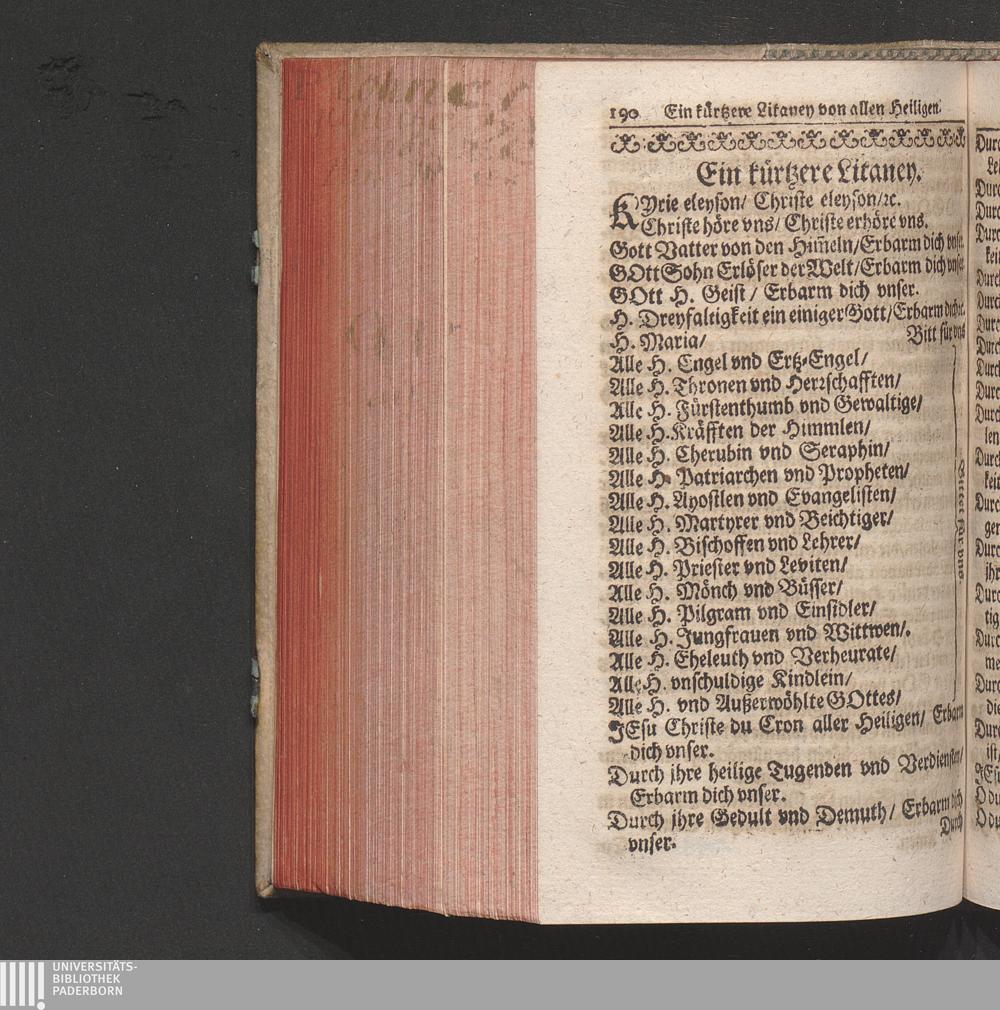 190 Ein kürtzere Litaney von allen Heiligen.
Ein kürtzere Litaney.
KYrie eleyson/ Christe eleyson/ꝛc.
Christe höre vns/ Christe erhöre vns.
Gott Vatter von den Him̃eln/Erbarm dich vnser.
GOtt Sohn Erlöser der Welt/Erbarm dich vnser.
GOtt H. Geist/ Erbarm dich vnser.
H. Dreyfaltigkeit ein einiger Gott/Erbarm dich ꝛc.
H. Maria/ Bitt für vns
Alle H. Engel vnd Ertz-Engel/
Alle H. Thronen vnd Herꝛschafften/
Alle H. Fürstenthumb vnd Gewaltige/
Alle H. Kräfften der Himmlen/
Alle H. Cherubin vnd Seraphin/
Alle H. Patriarchen vnd Propheten/
Alle H. Apostlen vnd Evangelisten/
Alle H. Martyrer vnd Beichtiger/
Alle H. Bischoffen vnd Lehrer/
Alle H. Priester vnd Leviten/
Alle H. Mönch vnd Büsser/
Alle H. Pilgram vnd Einsidler/
Alle H. Jungfrauen vnd Wittwen/.
Alle H. Eheleuth vnd Verheurate/
Alle H. vnschuldige Kindlein/
Alle H. vnd Außerwöhlte GOttes/
Bittet für vns.
JEsu Christe du Cron aller Heiligen/ Erbarm
dich vnser.
Durch jhre heilige Tugenden vnd Verdiensten/
Erbarm dich vnser.
Durch jhre Gedult vnd Demuth/ Erbarm dich
vnser.
Durch
UNIVERSITÄTS-
BIBLIOTHEK
PADERBORN